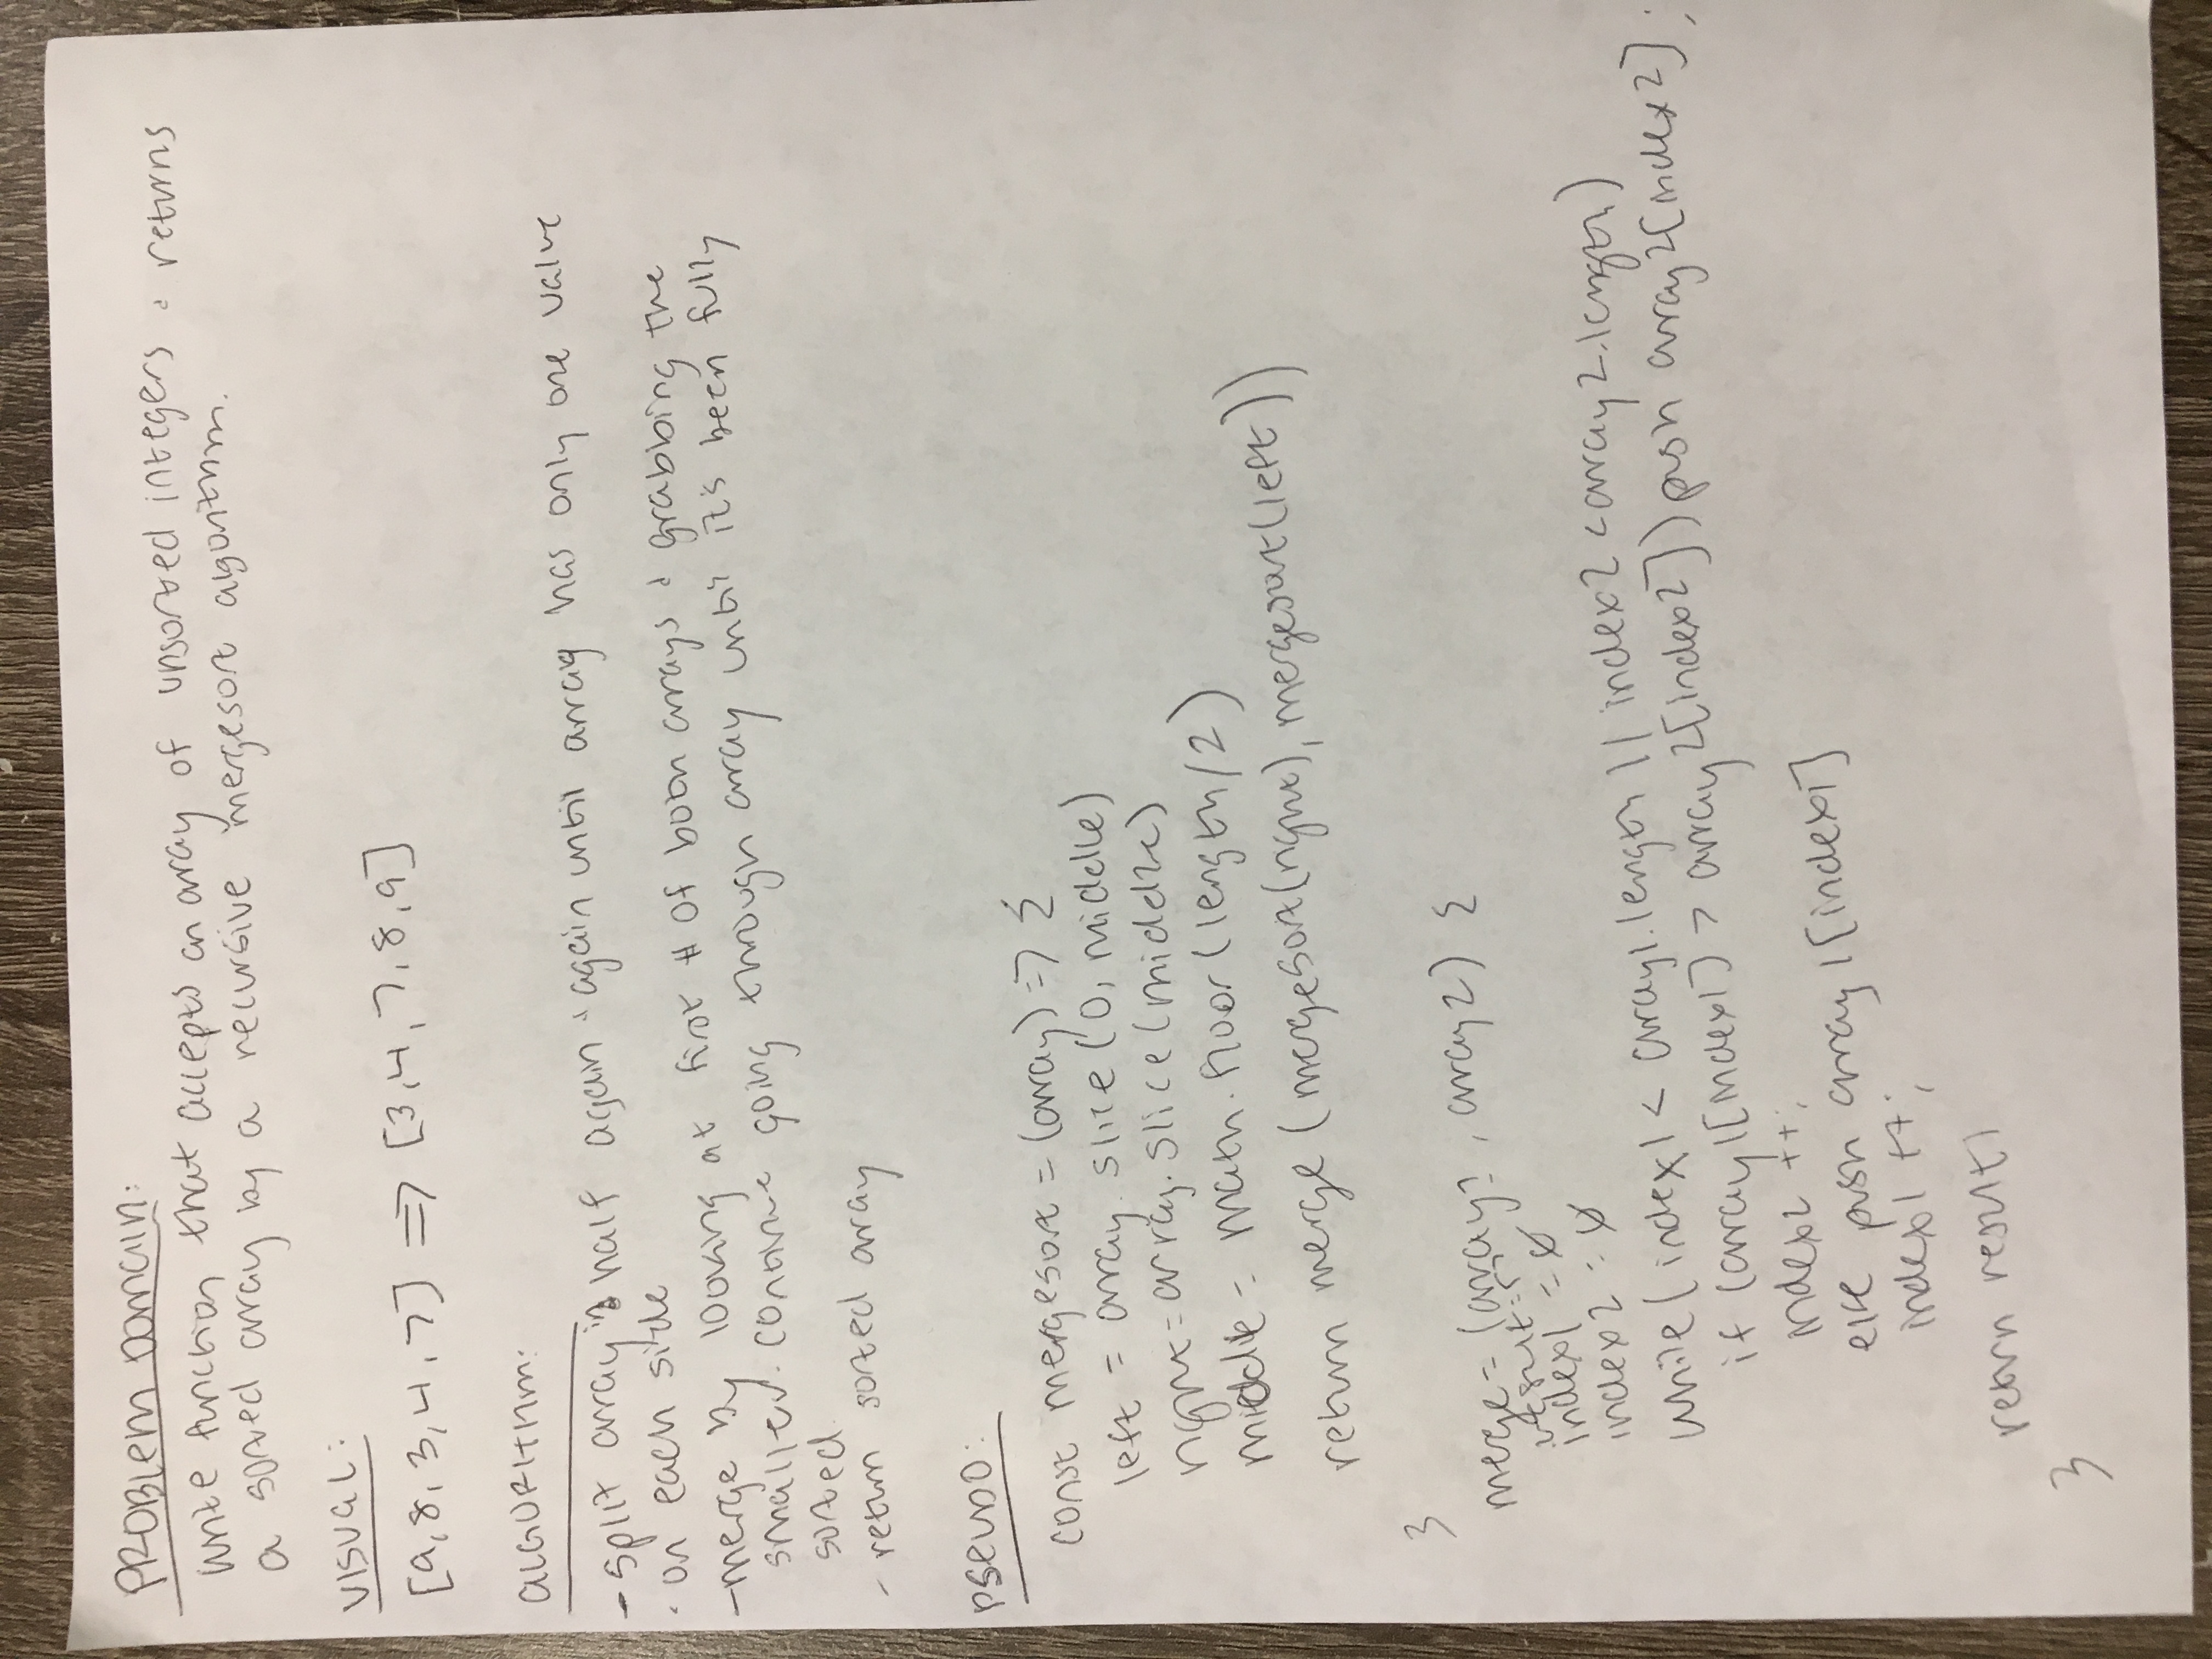 PROBLEM DOMAIN:
Write function that accepts an array of unsorted integers & returns
a sorted array by a recursive mergesort algorithm.
VISUAL:
[9,8,3,4,7] => [3,4,7,8,9]
ALGORITHM:
- split array in half again & again until array has only one value
- on each side
- merge by looking at first # of both arrays & grabbing the
smaller. continue going through array until it's been fully
sorted
- return sorted array
PSEUDO:
const mergesort = (array) => {
left = array.slice(0, middle)
right = array.slice(middle)
middle = math.floor(length/2)
return merge (mergesort(right), mergesort(left))
}
merge = (array1, array2) {
result = []
index1 = 0
index2 = 0
while( index1 < array1.length || index2 < array2.length)
if (array1[index1] > array2[index2]) push array2[index2];
index2 ++;
else push array1[index1]
index1 ++;
return result;
}